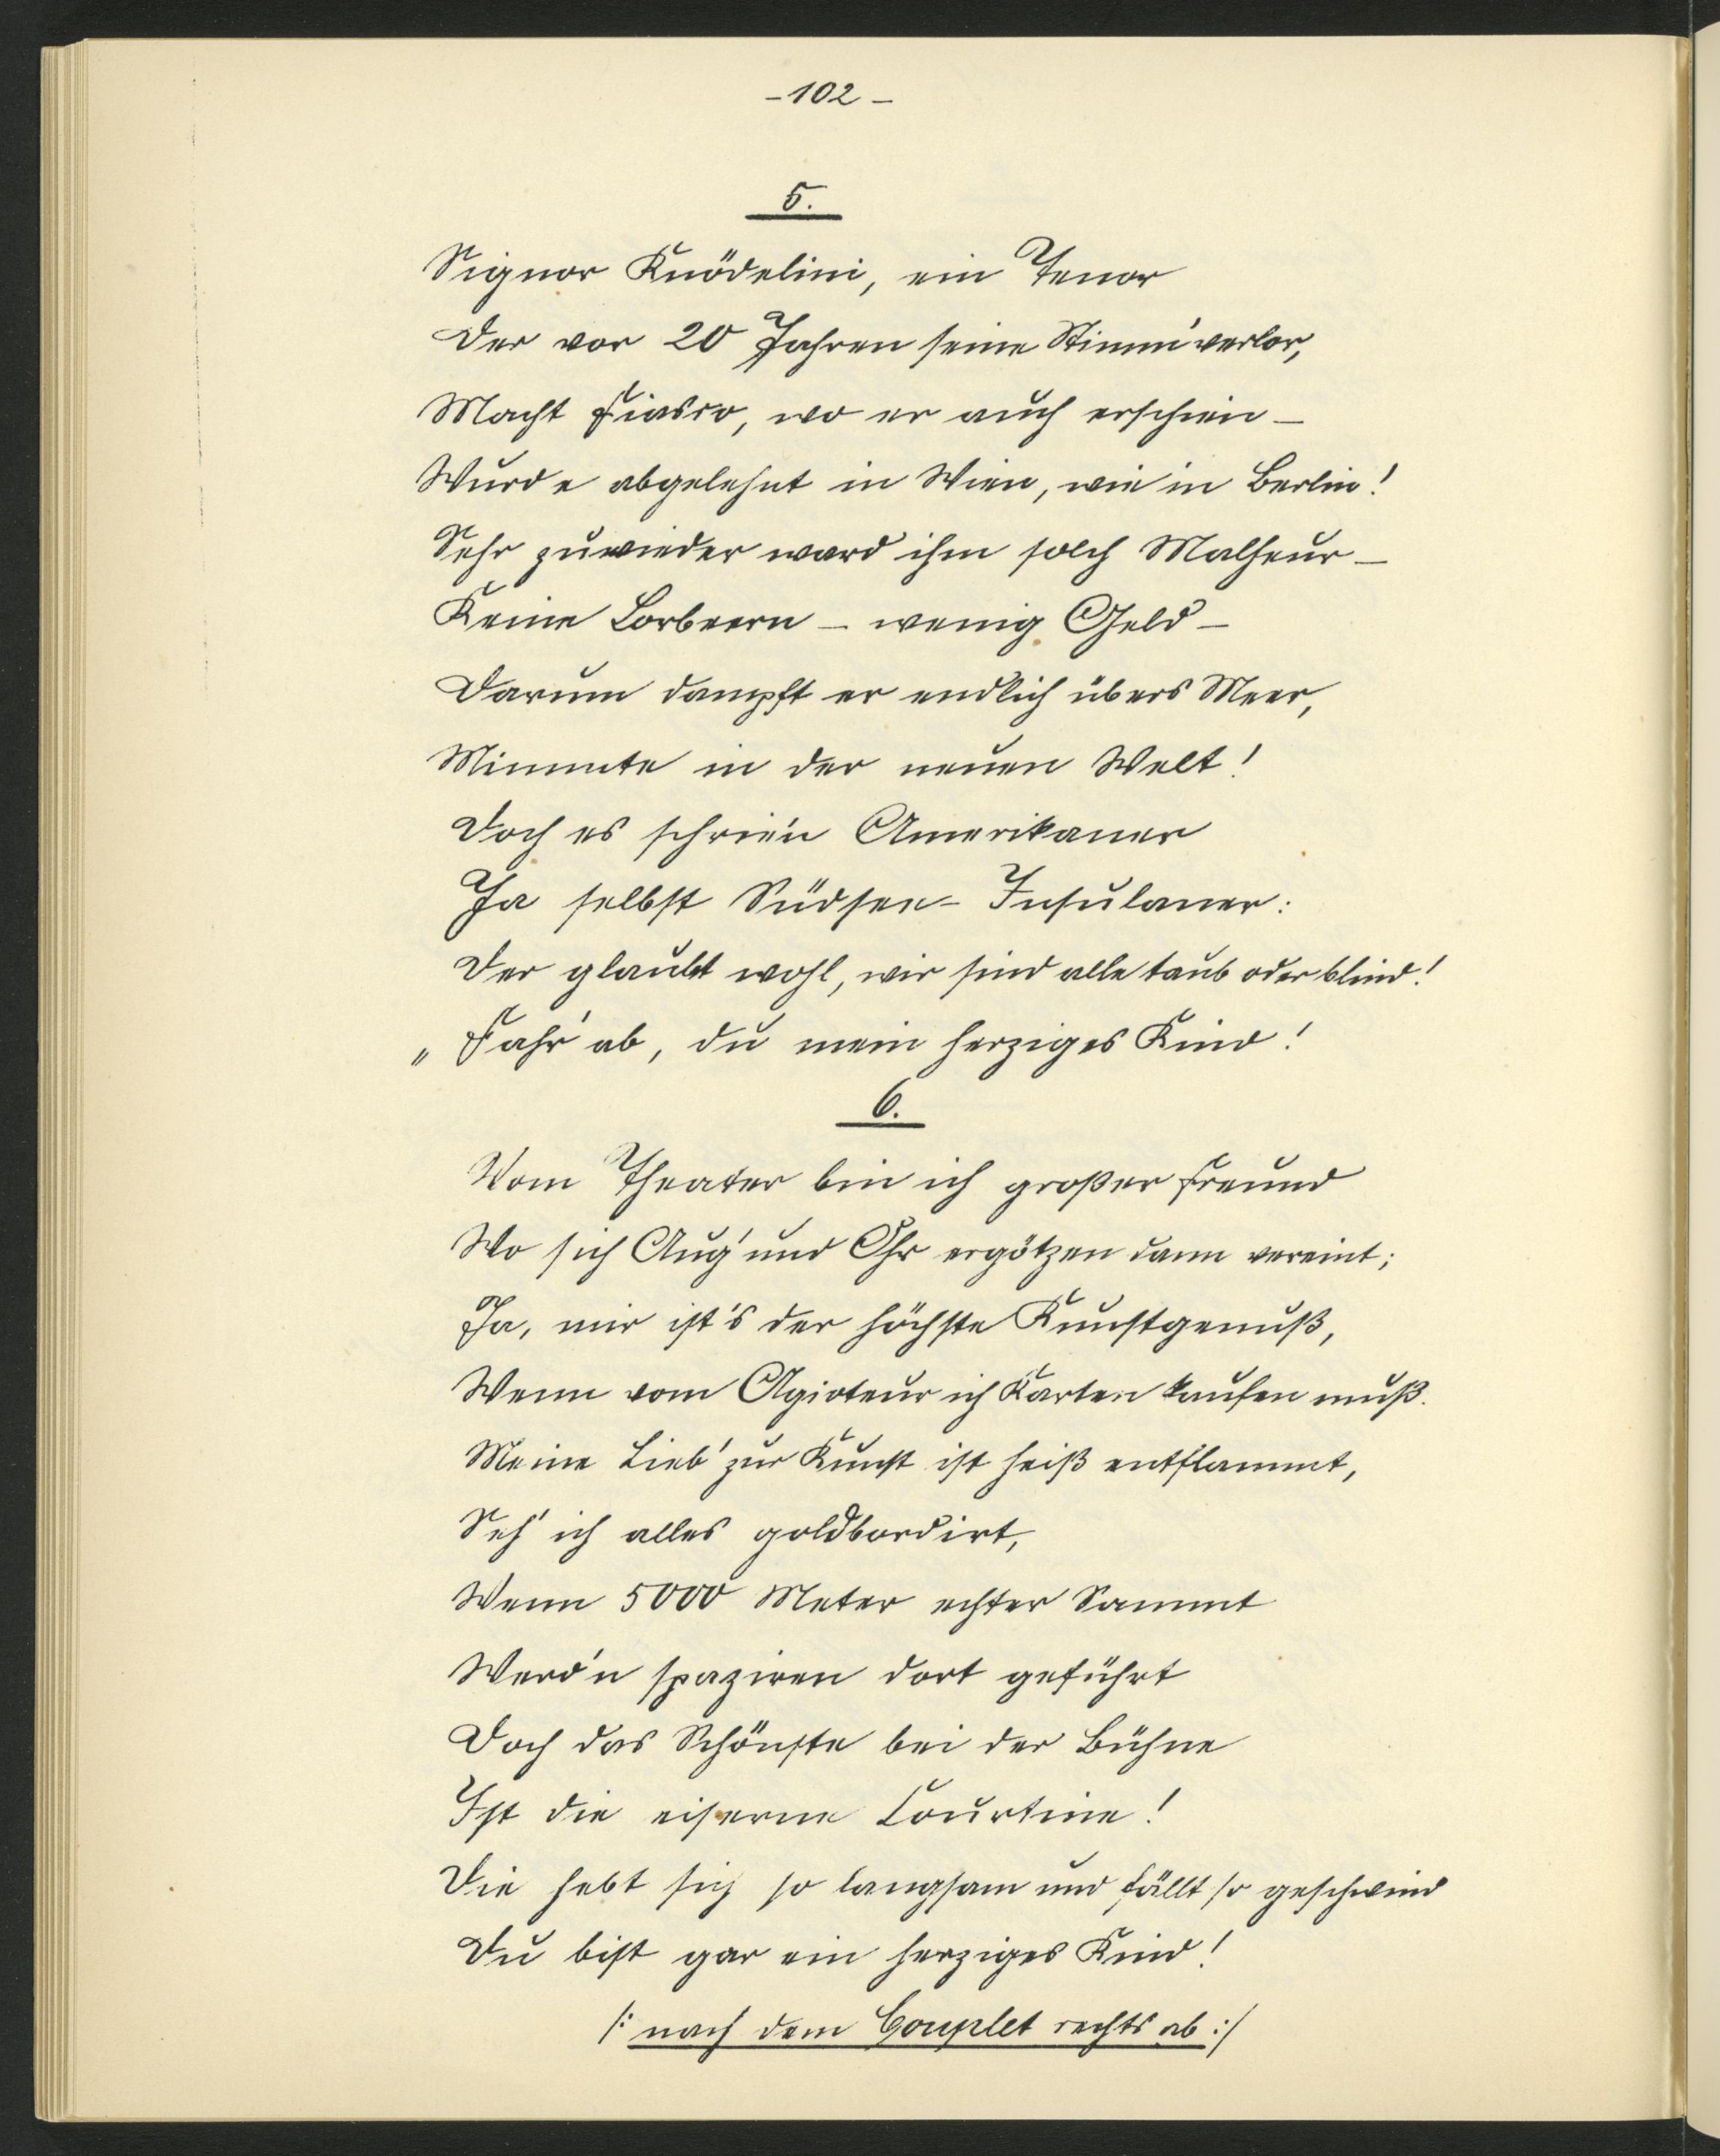 - 102 -
5.
Signor Knödelini, ein Tenor
Der vor 20 Jahren seine Stimm' verlor,
Macht Fiasco, wo er auch erschien –
Wurde abgelehnt in Wien, wie in Berlin!
Sehr zuwieder ward ihm solch Malheur –
Keine Lorbeern – wenig Geld –
Darum dampft er endlich übers Meer,
Mimmte in der neuen Welt!
Doch es schrie'n Amerikaner
Ja selbst Südsee-Insulaner:
Der glaubt wohl, wir sind alle taub oder blind!
„Fahr' ab, du mein herziges Kind!
6.
Vom Theater bin ich großer Freund
Wo sich Aug' und Ohr ergötzen dann vereint;
Ja, mir ist's der höchste Kunstgenuß,
Wenn vom Agioteur ich Karten kaufen muß.
Meine Lieb' zur Kunst ist heiß entflammt,
Seh' ich alles goldbordirt,
Wenn 5000 Meter echter Sammt
Werd'n spaziren dort geführt
Doch das Schönste bei der Bühne
Ist die eiserne Courtine!
Die hebt sich so langsam und fällt so geschwind
Du bist gar ein herziges Kind!
/: nach dem Couplet rechts ab :/